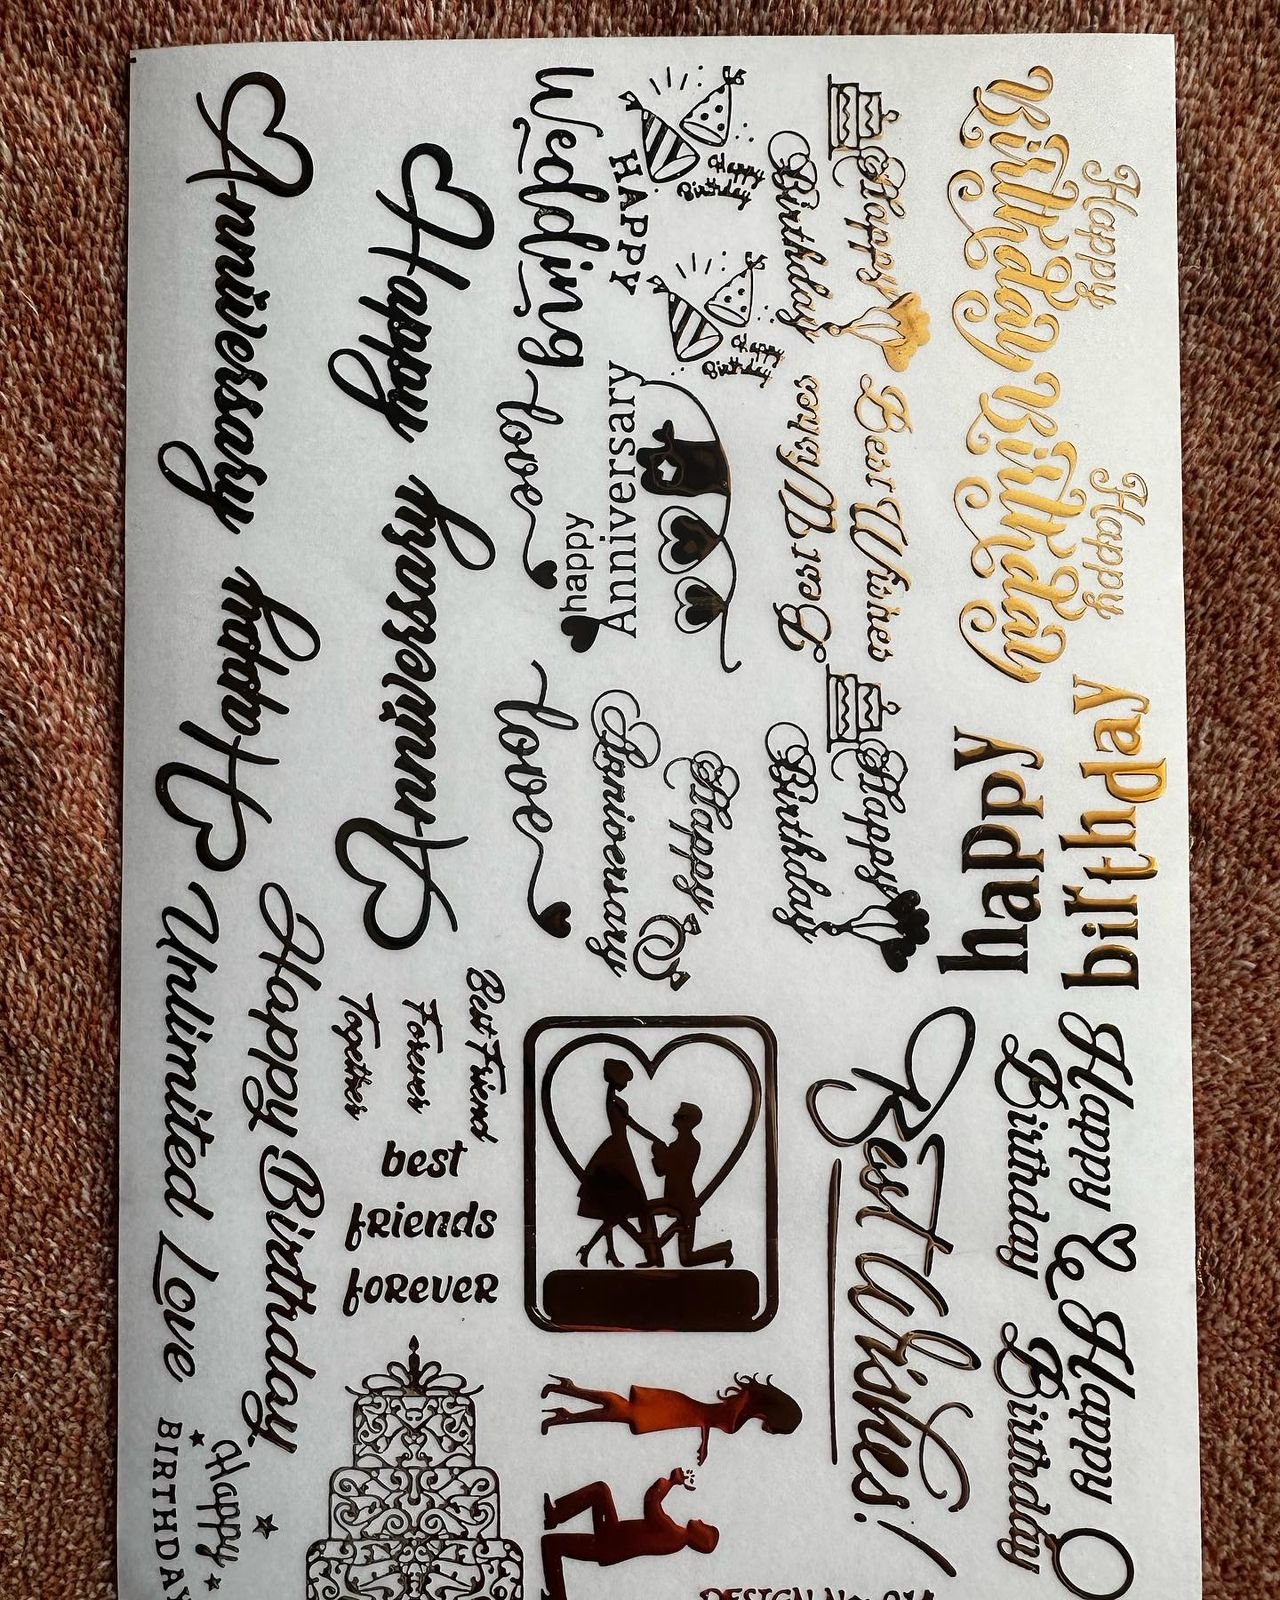 Happy
Birthday
Happy
Birthday
happy
birthday
Happy
Birthday
Happy
Birthday
Happy
Birthday
Best Wishes
Best Wishes
Happy
Birthday
Best Wishes!
Happy
Birthday
Happy
Birthday
HAPPY
Wedding
happy
Anniversary
love
love
Happy
Anniversary
Happy
Anniversary
Anniversary
Happy
Best Friend
Forever
Together
best
friends
forever
Happy Birthday
Unlimited Love
Happy
BIRTHDAY